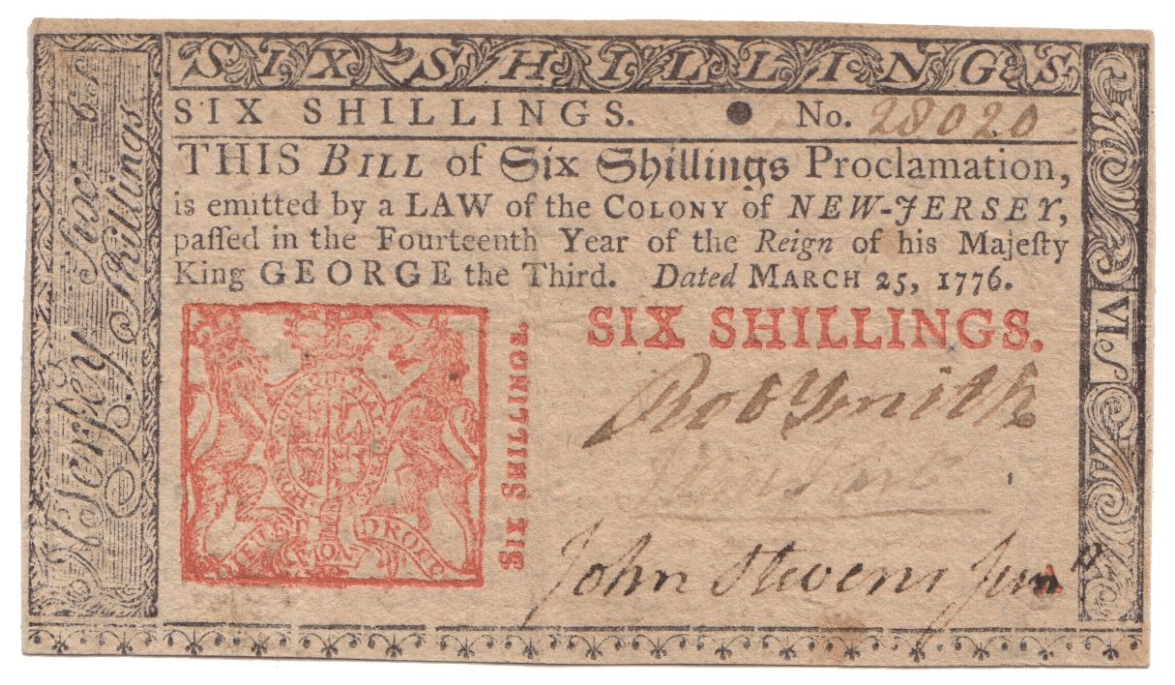 SIX SHILLINGS
SIX SHILLINGS. No. 28020
THIS BILL of Six Shillings Proclamation,
is emitted by a LAW of the COLONY of NEW-JERSEY,
paſſed in the Fourteenth Year of the Reign of his Majeſty
King GEORGE the Third. Dated MARCH 25, 1776.
SIX SHILLINGS.
SIX SHILLINGS.
DIEU ET MON DROIT
Rob Smith
John Stevens Junr
A
N Jerſey Six s
Shillings
VIS